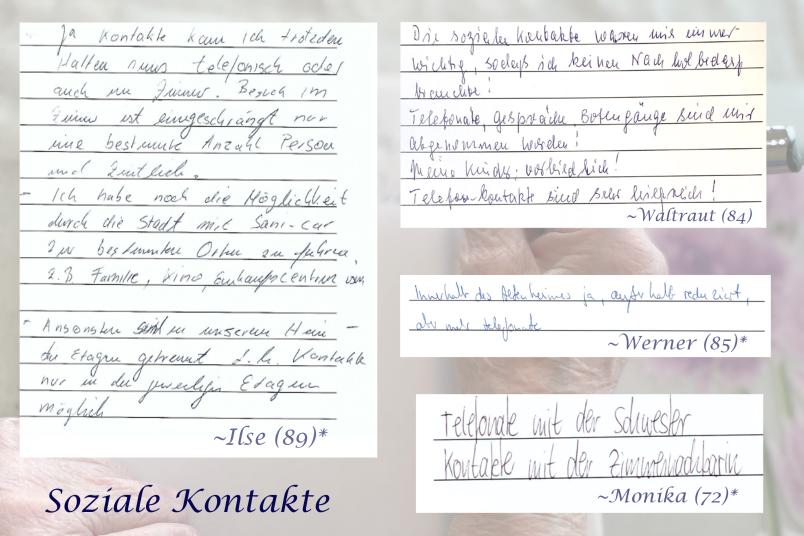 Ja Kontakte kann ich trotzdem
Halten sums telefonisch oder
auch im Zimmer. Besuch im
Zimmer ist eingeschränkt nur
eine bestimmte Anzahl Person
und Zeitlich.
- Ich habe noch die Möglichkeit
durch die Stadt mit Sani-car
zu bestimmten Orten zu fahren,
z.B Familie, Kino, Einkaufscentren usw.
- Ansonsten sind in unserem Heim -
die Etagen getrennt d.h. Kontakte
nur in der jeweiligen Etagen
möglich
~Ilse (89)*
Soziale Kontakte
Die soziale Kontakte waren mir immer
wichtig, sodass ich keinen Nachholbedarf
brauchte!
Telefonate, gespräche, Botengänge sind mir
abgenommen worden!
Meine Kinder: vorbildlich!
Telefon-Kontakte sind sehr hilfreich!
~Waltraut (84)
Innerhalb des Altenheimes ja, außerhalb reduziert,
aber mehr telefonate
~Werner (85)*
Telefonate mit der Schwester
Kontakte mit der Zimmernachbarin
~Monika (72)*